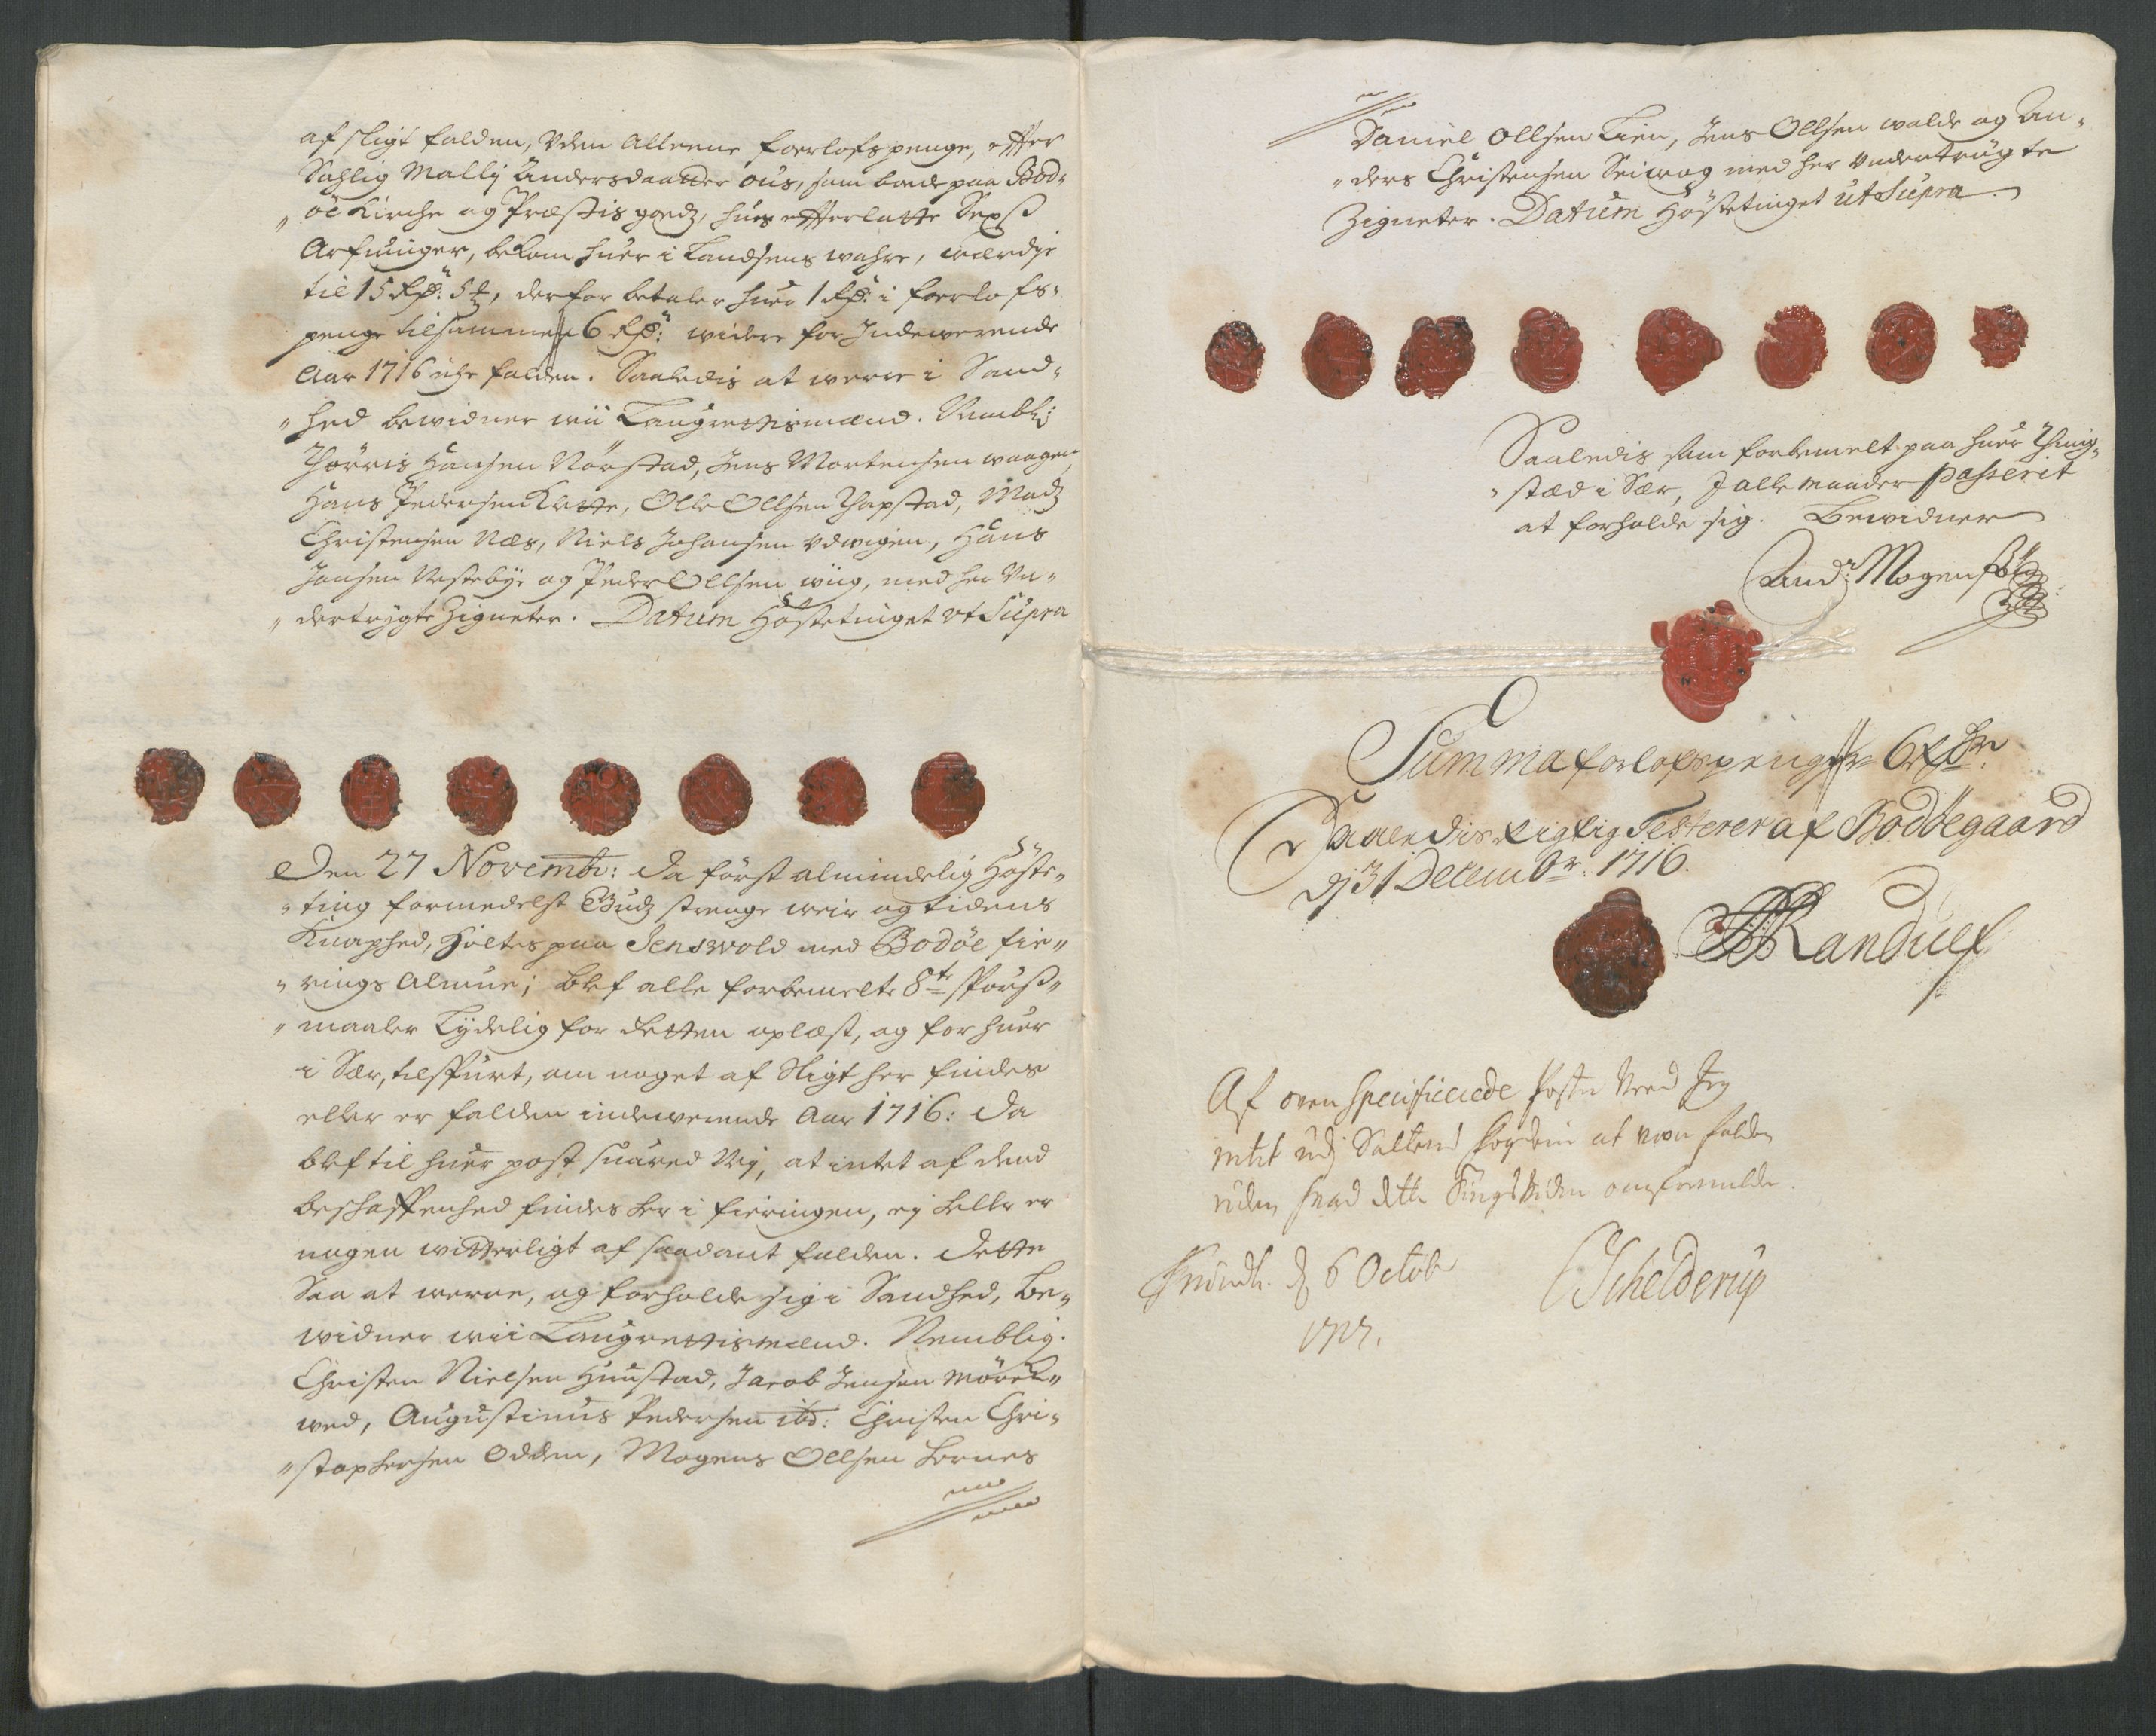 af sligt falden, Uden Alleene foerlofspenge, effter
Sahlig Mallj Andersdaatter ous, som boede paa Bod-
"öe Kirche og Præstis godz, hues effterlatte Sex
Arfuinger, bekom huer i Landsens wahre, werdje
til 15 Rdr: 5, derfor betaler huer 1 Rdr: i foerlofs-
penge tilsammen 6 Rdr: widere for Indewerende
Aar 1716 iche falden. Saaledis at were i Sand-
"hed bewidner wii Laugrettismænd. Nembl:
Thorris Hansen Nörstad, Jens Mortensen waagen,
Hans Pedersen Klette, Olle Ollsen Thapstad, Madz
Christensen Næs, Niels Johansen Udwigen, Hans
Jonsen Westebye og Peder Ollsen wiig, med her Un-
"dertrygte Zigneter. Datum Höstetinget ut Supra
Den 27 Novembr: da først almindelig Höste-
"ting formedelst Gudz strenge weir og tidens
Knaphed, Holtes paa Jenswold med Bodöe fie-
"rings Almue; blef alle forbemelte 8te spörs-
"maaler Tydelig for Retten oplæst, og for huer
i Sær, tilspurt, om noget af Sligt her findes
eller er falden indewerende Aar 1716: da
blef til huer post suared Nej, at intet af dend
beschaffenhed findes her i fieringen, ej heller er
nogen witterligt af saadant falden. Dette
Saa at werre, og forholde sig i Sandhed, Be-
widner wii Laugrettismænd. Nemblig.
Christen Nielsen Hunstad, Jacob Jensen Mörch-
wed, Augustinus Pedersen ibd: Christen Chri-
"stophersen Odden, Mogens Ollsen Bernes
Daniel Ollsen Lien, Jens Ollsen walde og An-
"ders Christensen Seiwog med her Undertrögte
Zigneter. Datum Höstetinget ut Supra.
Saaledis som forbemelt paa huer Thing-
"stæd i Sær, J alle maader passerit
at forholde sig. Bewidner
And: Mogens
Summa forlofspenge 6 Rdr
Saaledis Rigtig Testerer af Boddegaard
dj 31 Decembr. 1716.
Randulf
Af oven Specificerede Poster Veed Jeg
intet udj Saltens fogderie at were falden
uden hvad dette Tingsviden omformelder.
Trundh. d 6 Octob
1717.
Schelderup